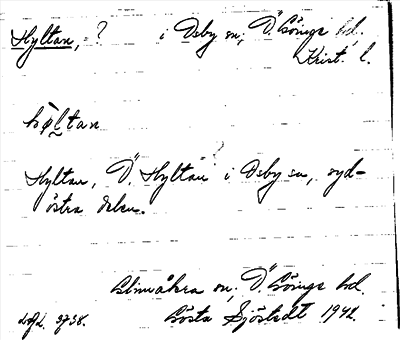 Hyltan, ? i Osby sn, Ö. Göinge hd.
Krist. l.
høltan
Hyltan, Ö. Hyltan ? i Osby sn, syd-
östra delen.
Glimåkra sn, Ö. Göinge hd.
Gösta Sjöstedt 1942.